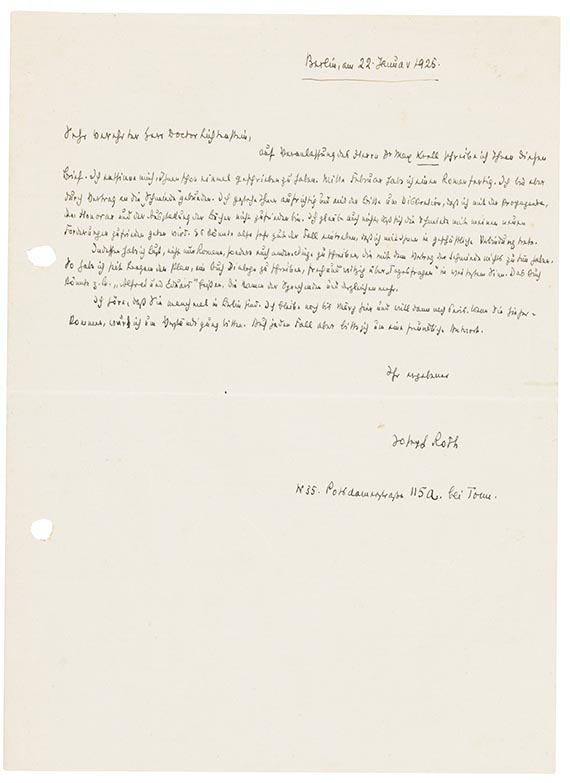 Berlin, am 22. Januar 1925.
Sehr verehrter Herr Doctor Lichtenstein,
auf Veranlassung des Herrn Dr Max Krell schreibe ich Ihnen diesen
Brief. Ich entsinne mich, Ihnen schon einmal geschrieben zu haben. Mitte Februar habe ich einen Roman fertig. Ich bin aber
durch Vertrag an die „Schmiede“ gebunden. Ich gestehe Ihnen aufrichtig und mit der Bitte um Diskretion, daß ich mit der Propaganda,
dem Honorar und der Ausstattung der Bücher nicht zufrieden bin. Ich glaube auch nicht, daß sich die Schmiede mit meinen neuen
Forderungen zufrieden geben wird. Es könnte also sehr gut der Fall eintreten, daß ich mit Ihnen in geschäftliche Verbindung trete.
Indessen habe ich Lust, nicht nur Romane, sondern auch andere Dinge zu schreiben, die mit dem Vertrag der Schmiede nichts zu tun haben.
So habe ich seit langem den Plan, ein Buch Dialoge zu schreiben, ernst und witzig über „Tagesfragen“ im weitesten Sinn. Das Buch
könnte z. B. „Alfred und Eduard“ heißen. Die Namen der Sprechenden
Ich höre, daß Sie manchmal in Berlin sind. Ich bleibe noch bis März hier und will dann nach Paris. Wenn Sie hieher-
kommen, würde ich um Verständigung bitten. Auf jeden Fall aber bitte ich um eine freundliche Antwort.
Ihr ergebener
Joseph Roth
W 35. Potsdamerstraße 115A. bei